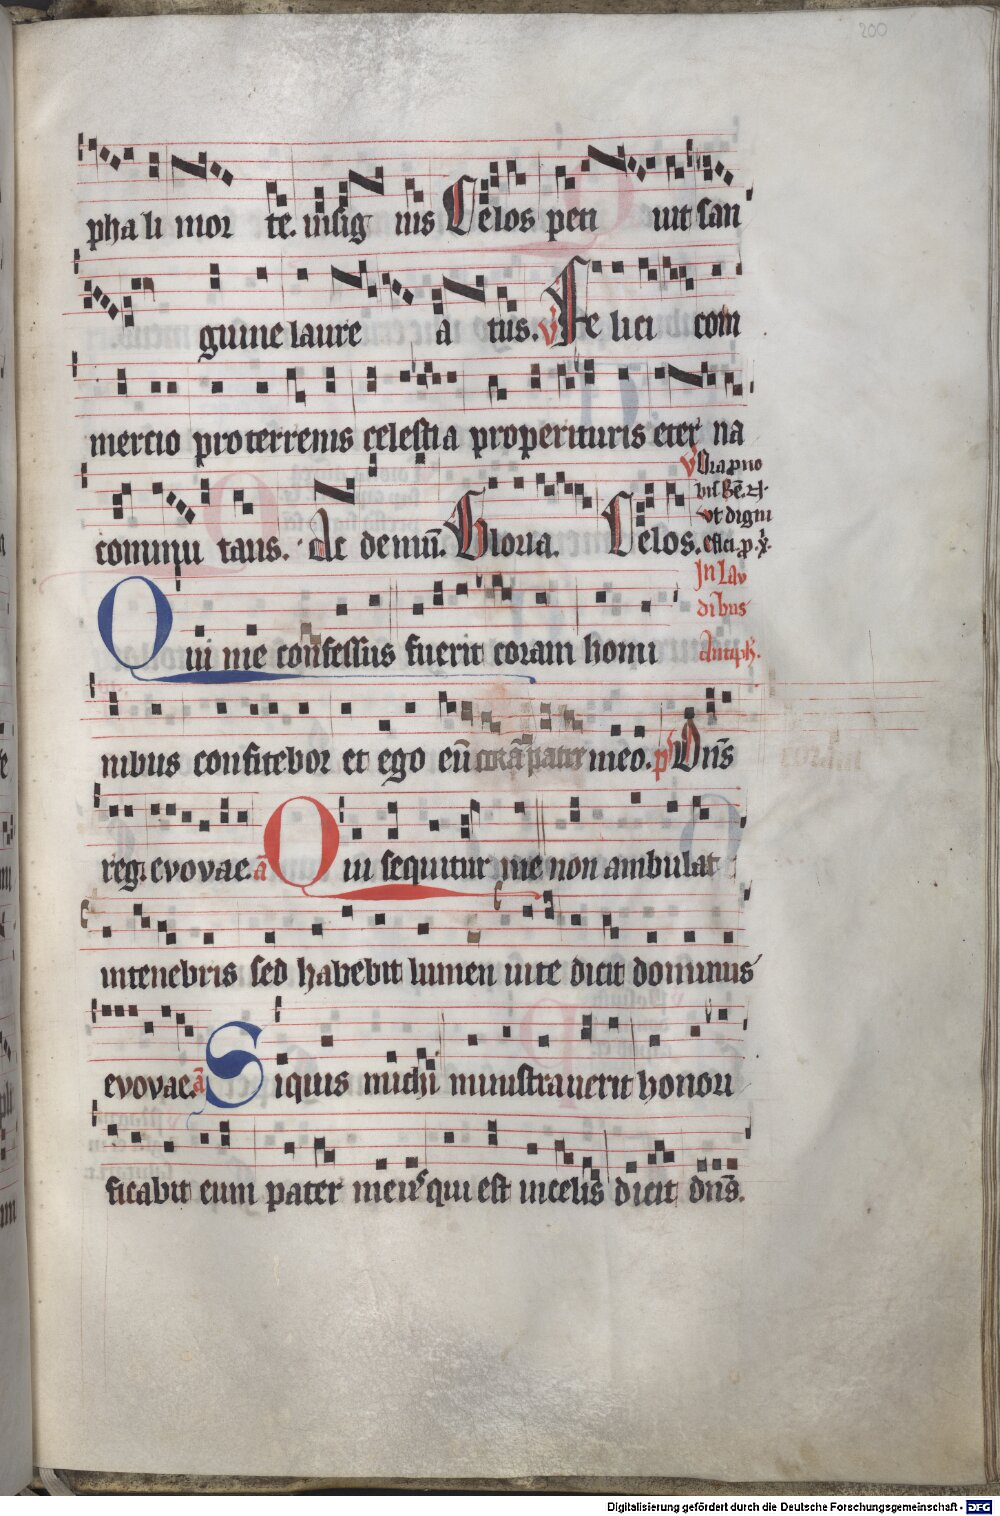 200
pha li mor te. insig nis Celos peti uit san
guine laure a tus. V Fe lici com
mercio pro terrenis celestia pro perituris eter na
V Ora pro
commu tans. Ac demū. Gloria. Celos.
ut digni
In Lau
dibus
Antiph.
Qui me confessus fuerit coram homi
nibus confitebor et ego eū corā patre meo. ps Dn̄s
reg. evovae. a Qui sequitur me non ambulat
in tenebris sed habebit lumen uite dicit dominus
evovae. a Siquis michi ministrauerit honori
ficabit eum pater meus qui est in celis dicit dn̄s.
Digitalisierung gefördert durch die Deutsche Forschungsgemeinschaft - DFG